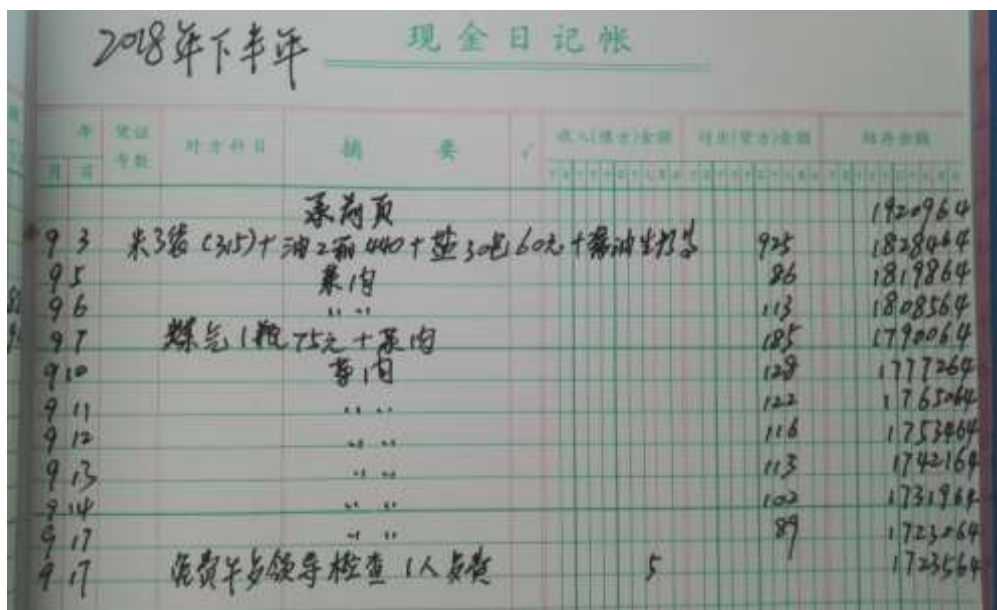 2018年下半年 现金日记帐
年 凭证号数 对方科目 摘要 √ 收入(借方)金额 付出(贷方)金额 结存金额
月 日
承前页 1920964
9 3 米3袋(315)+油2桶440+盐30包60元+酱油生抽等 925 1828464
9 5 菜肉 86 1819864
9 6 〃 〃 113 1808564
9 7 煤气1瓶75元+菜肉 185 1790064
9 10 菜肉 128 1777264
9 11 〃 〃 122 1765064
9 12 〃 〃 116 1753464
9 13 〃 〃 113 1742164
9 14 〃 〃 102 1731964
9 17 〃 〃 89 1723064
9 17 免费午餐领导检查1人餐费 5 1723564